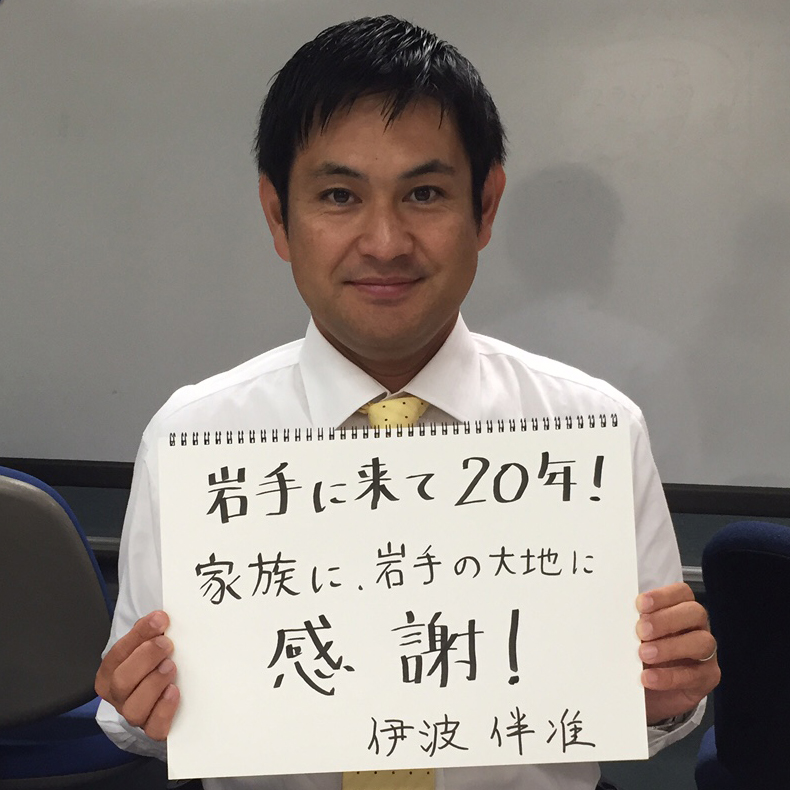 岩手に来て20年!
家族に、岩手の大地に
感謝!
伊波 伴准